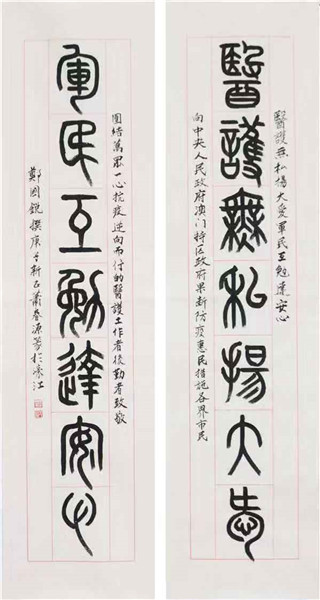 醫護無私揚大愛軍民互勉達安心
醫護無私揚大愛
向中央人民政府澳门特区政府果断防疫惠民措施各界市民
團结萬眾一心抗疫逆向而行的醫護工作者後勤者致敬
軍民互勉達安心
鄭國銳撰庚子新正蕭春源篆於濠江